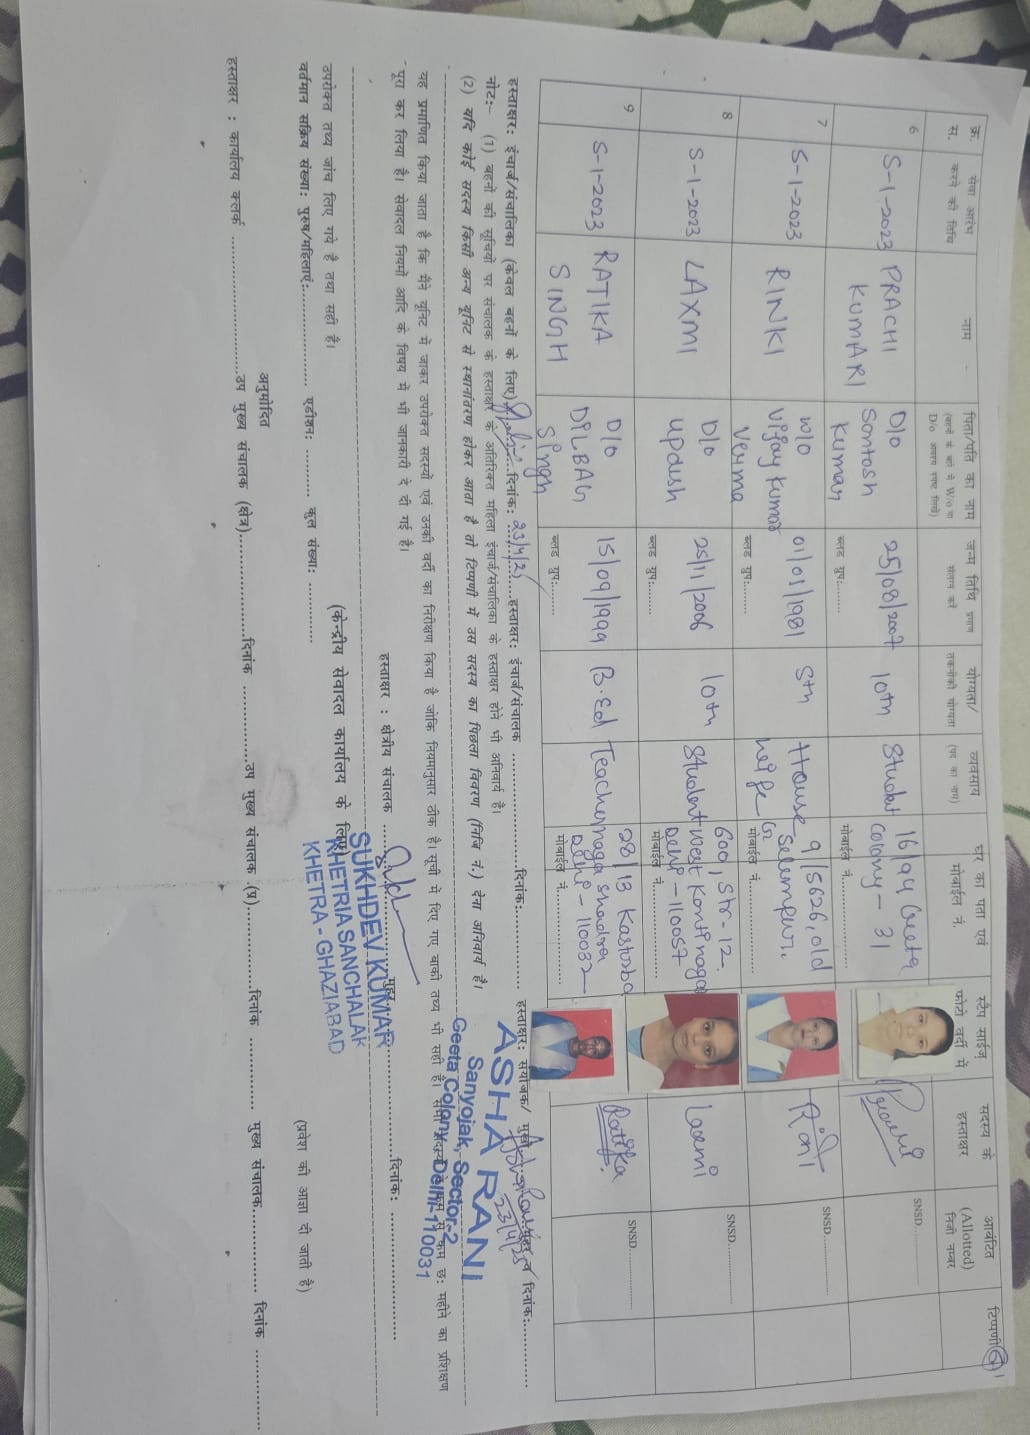 क्र. स.
सेवा आरंभ करने की तिथि
नाम
पिता/पति का नाम
(बहनों के बारे में W/o या D/o अवश्य स्पष्ट लिखें)
जन्म तिथि प्रमाण संलग्न करें
योग्यता/
तकनीकी योग्यता
व्यवसाय
(पद का नाम)
घर का पता एवं मोबाईल नं.
स्टैंप साईज़ फोटो वर्दी में
सदस्य के हस्ताक्षर
आबंटित (Allotted) निजी नम्बर
टिप्पणी
6
5-1-2023
PRACHI
KUMARI
D/o
Santosh
Kumar
25/08/2007
ब्लड ग्रुप:........
10th
Student
16/94 Geeta
Colony - 31
मोबाईल नं................
SNSD..............
7
5-1-2023
RINKI
W/o
Vijay Kumar
Verma
01/01/1981
ब्लड ग्रुप:........
5th
House
9/5626, old
Seelampur,
मोबाईल नं................
SNSD..............
8
5-1-2023
LAXMI
D/o
Updesh
25/11/2006
ब्लड ग्रुप:........
10th
Student
600, Str-12.
West Kanti nagar
Delhi - 110051
मोबाईल नं................
Laxmi
SNSD..............
9
5-1-2023
RATIKA
SINGH
D/o
DILBAG
Singh
15/09/1999
ब्लड ग्रुप:........
B.Ed
Teacher
28/13 Kasturba
naga Shadra
Delhi - 110032
मोबाईल नं................
Ratika
SNSD..............
हस्ताक्षर: इंचार्ज/संचालिका (केवल बहनों के लिए) ........दिनांक: ........हस्ताक्षर: इंचार्ज/संचालक ................दिनांक:............ हस्ताक्षर: संयोजक/ मुखी ........ मुहर व दिनांक:............
नोट:- (1) बहनों की सूचियों पर संचालक के हस्ताक्षर के अतिरिक्त महिला इंचार्ज/संचालिका के हस्ताक्षर होने भी अनिवार्य है।
ASHA RANI
23/4/25
(2) यदि कोई सदस्य किसी अन्य यूनिट से स्थानांतरण होकर आता है तो टिप्पणी में उस सदस्य का पिछला विवरण (निजि नं.) देना अनिवार्य है।
Sanyojak, Sector-2
Geeta Colony, Delhi-110031
यह प्रमाणित किया जाता है कि मैने यूनिट में जाकर उपरोक्त सदस्यों एवं उनकी वर्दी का निरीक्षण किया है जोकि नियमानुसार ठीक है। सूची में दिए गए बाकी तथ्य भी सही है। सभी सदस्यों ने कम से कम छ: महीने का प्रशिक्षण
पूरा कर लिया है। सेवादल नियमों आदि के विषय में भी जानकारी दे दी गई है।
हस्ताक्षर : क्षेत्रीय संचालक ................मुहर................दिनांक: ................
SUKHDEV KUMAR
KHETRIA SANCHALAK
KHETRA - GHAZIABAD
(केन्द्रीय सेवादल कार्यालय के लिए)
उपरोक्त तथ्य जांच लिए गये है तथा सही है।
वर्तमान सक्रिय संख्या: पुरुष/महिलाएं:................ एडीशन: ........... कुल संख्या: ............
(प्रवेश की आज्ञा दी जाती है)
अनुमोदित
हस्ताक्षर : कार्यालय क्लर्क ........................उप मुख्य संचालक (क्षेत्र)................दिनांक ................उप मुख्य संचालक .(प्र)................दिनांक ................ मुख्य संचालक................ दिनांक ................